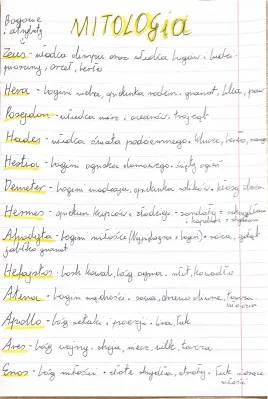 Bogowie
i atrybuty
MITOLOGIA
Zeus - władca olimpu oraz władca bogów:
pioruny, orzeł, berło
Hera - bogini nieba, opiekunka rodzin - granat, lilia, paw
Posejdon - władca mórz i oceanów, trójząb
Hades - władca świata podziemnego. klucze, berło,
Hestia - bogini ogniska domowego - święty ogień
Demeter - bogini urodzaju, opiekunka rolników, kłosy
Hermes - opiekun kupców i złodziei - sandały
i kapelusz
Afrodyta - bogini miłości - róża, gołąb
jabłko granat
Hefajstos - boski kowal, bóg ognia. młot, kowadło
Atena - bogini mądrości - sowa, drzewo oliwne, tarcza
Apollo - bóg sztuki i poezji. lira, łuk
Ares - bóg wojny - zbroja, miecz, tarcza
Eros - bóg miłości - złote skrzydła, strzały - łuk